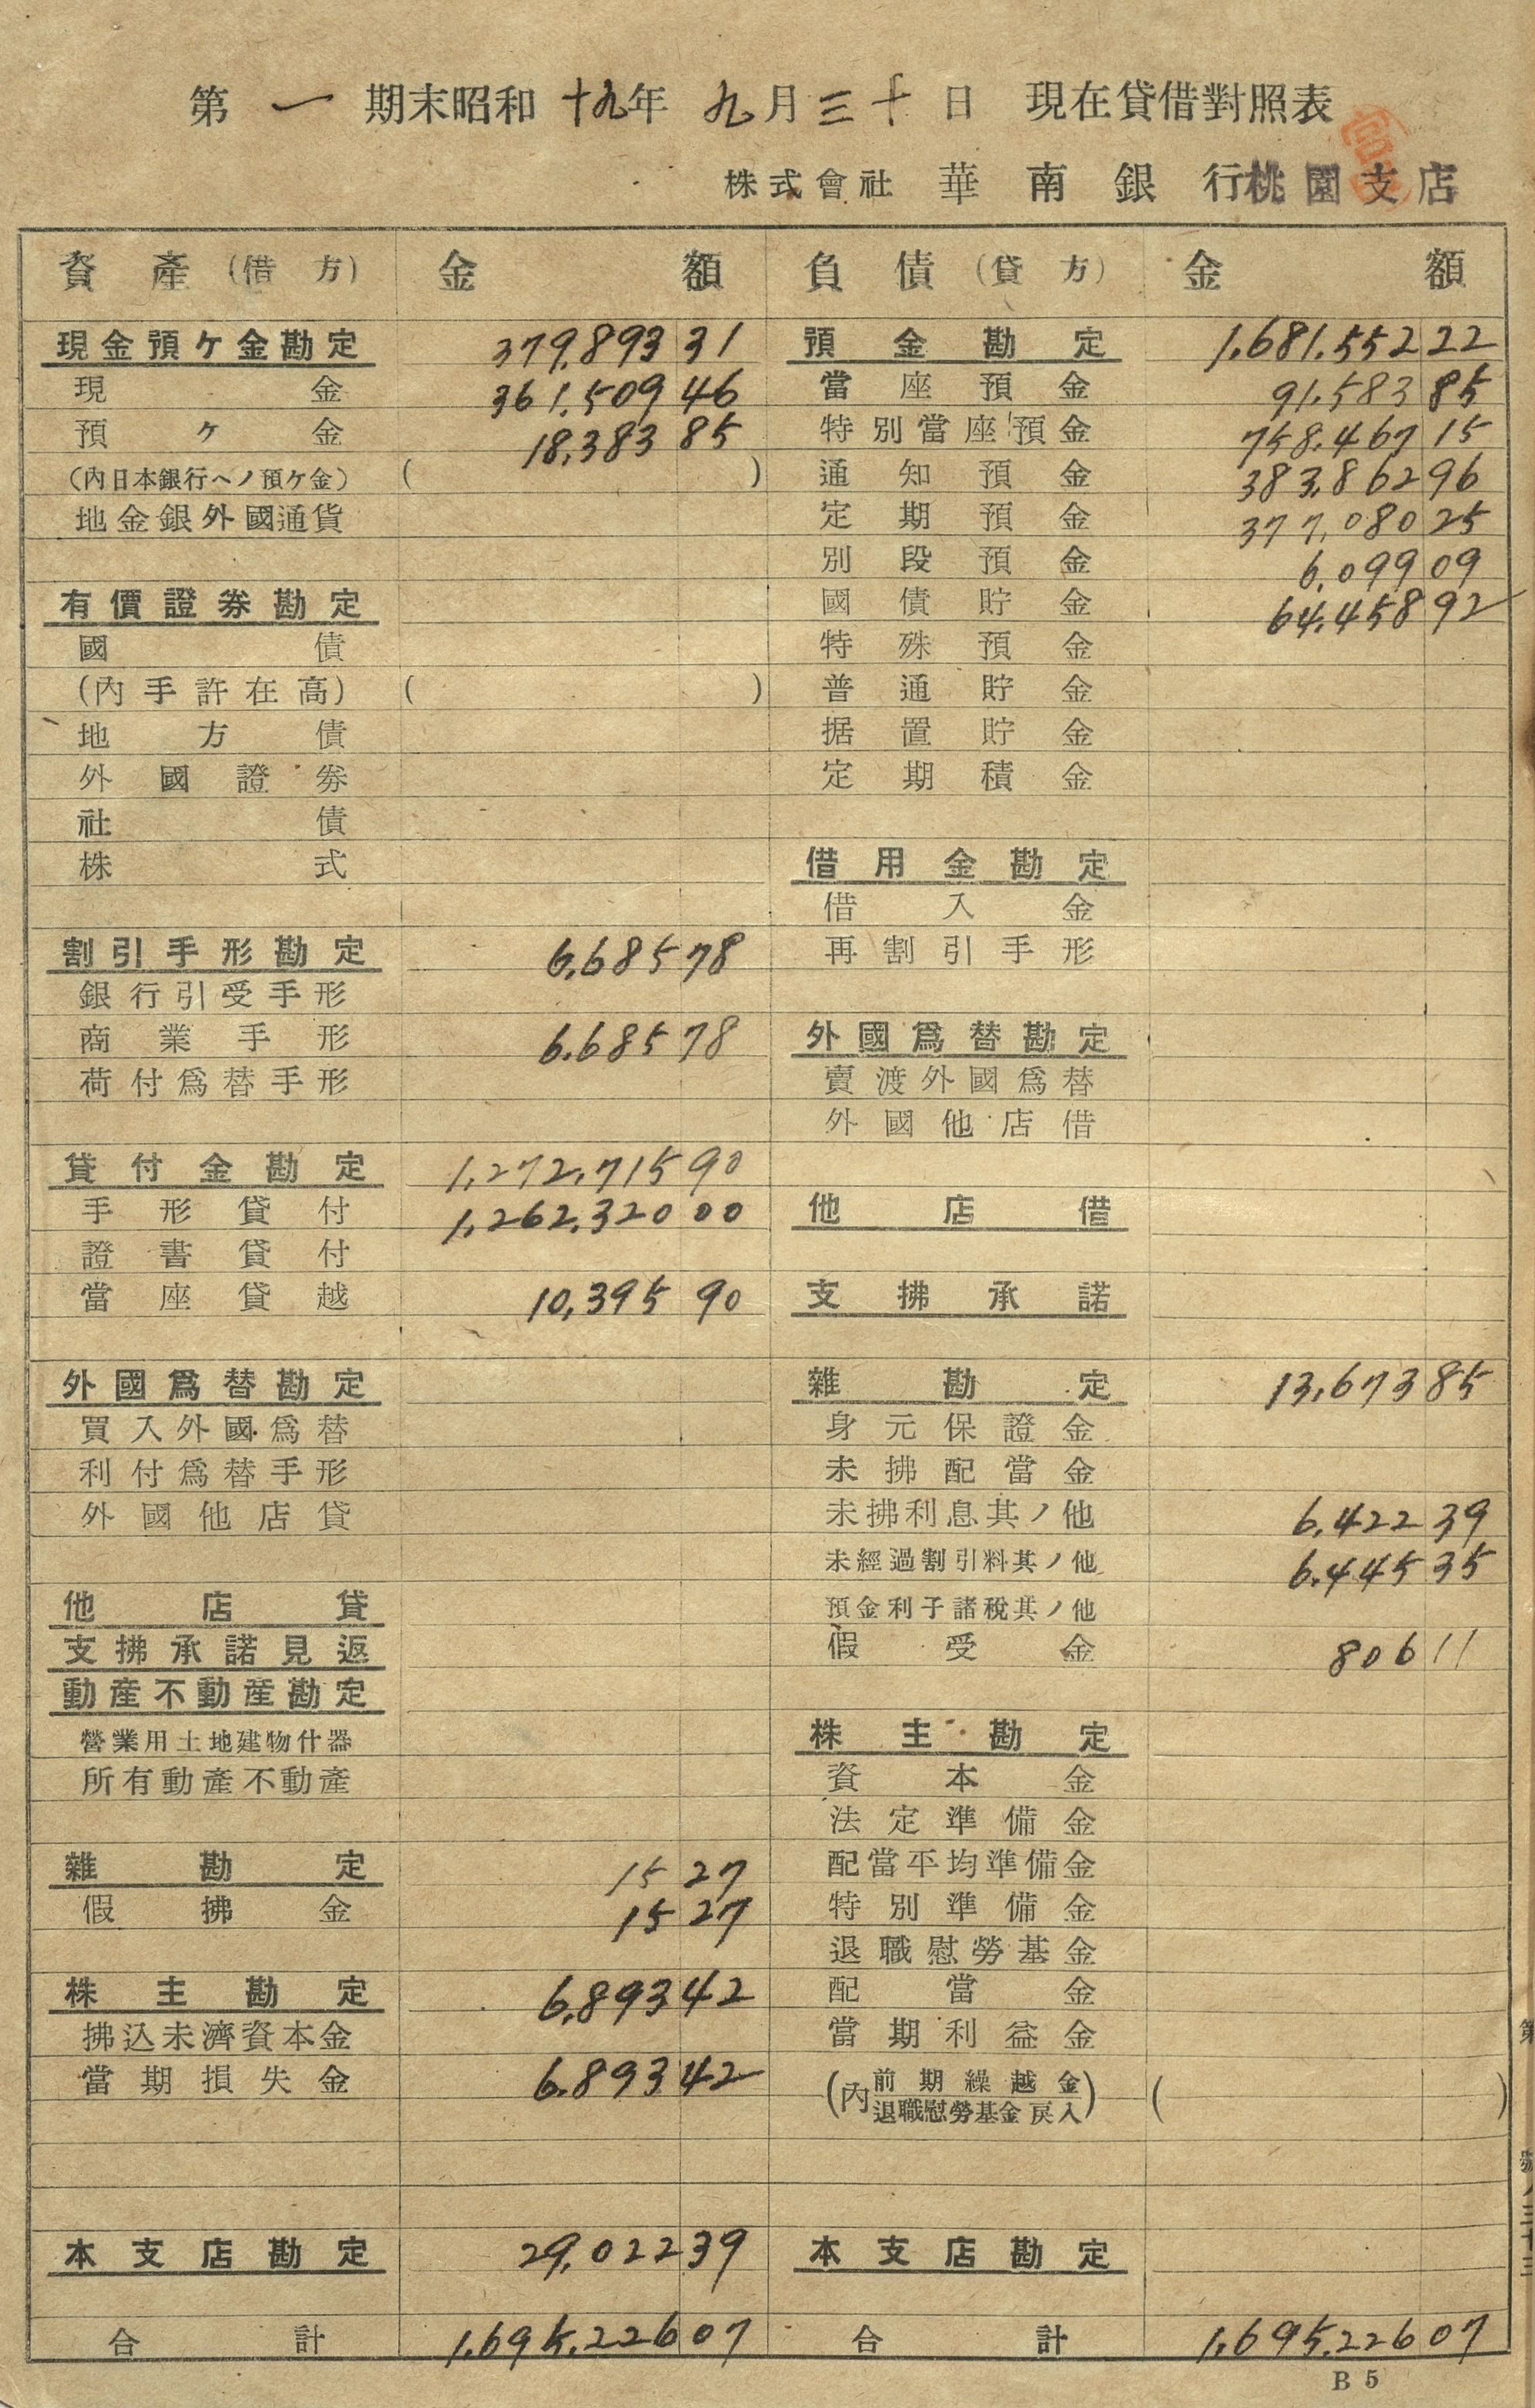 第一期末昭和十九年九月三十日 現在貸借對照表
株式會社 華南銀行桃園支店
資產(借方) 金額 負債(貸方) 金額
現金預ケ金勘定 379,893 31 預金勘定 1,681,552 22
現金 361,509 46 當座預金 91,583 85
預ケ金 18,383 85 特別當座預金 758,467 15
(內日本銀行ヘノ預ケ金) ( ) 通知預金 383,862 96
地金銀外國通貨 定期預金 377,080 25
別段預金 6,099 09
有價證券勘定 國債貯金 64,458 92
國債 特殊預金
(內手許在高) ( ) 普通貯金
地方債 据置貯金
外國證券 定期積金
社債
株式 借用金勘定
借入金
割引手形勘定 6,685 78 再割引手形
銀行引受手形
商業手形 6,685 78 外國爲替勘定
荷付爲替手形 賣渡外國爲替
外國他店借
貸付金勘定 1,272,715 90
手形貸付 1,262,320 00 他店借
證書貸付
當座貸越 10,395 90 支拂承諾
外國爲替勘定 雜勘定 13,673 85
買入外國爲替 身元保證金
利付爲替手形 未拂配當金
外國他店貸 未拂利息其ノ他 6,422 39
未經過割引料其ノ他 6,445 35
他店貸 預金利子諸稅其ノ他
支拂承諾見返 假受金 806 11
動産不動産勘定
營業用土地建物什器 株主勘定
所有動產不動產 資本金
法定準備金
雜勘定 15 27 配當平均準備金
假拂金 15 27 特別準備金
退職慰勞基金
株主勘定 6,893 42 配當金
拂込未濟資本金 當期利益金
當期損失金 6,893 42 (內前期繰越金 退職慰勞基金戾入) ( )
本支店勘定 29,022 39 本支店勘定
合計 1,695,226 07 合計 1,695,226 07
B 5